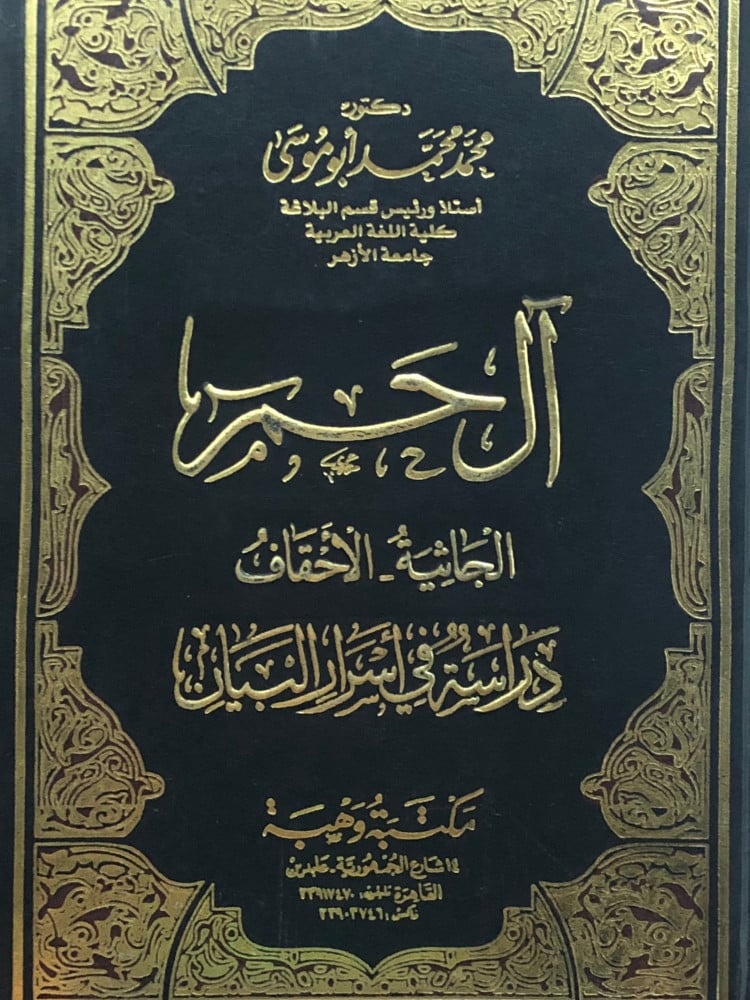 دكتور
محمد محمد أبو موسى
أستاذ ورئيس قسم البلاغة
كلية اللغة العربية
جامعة الأزهر
آل حم
الْجَاثِيَةُ - الْأَحْقَافُ
دِرَاسَةٌ فِي أَسْرَارِ الْبَيَانِ
مَكتَبَةُ وَهْبَة
١٤ شارع الجمهورية - عابدين
القاهرة تليفون: ٢٣٩١٧٤٧٠
فاكس: ٢٣٩٠٣٧٤٦